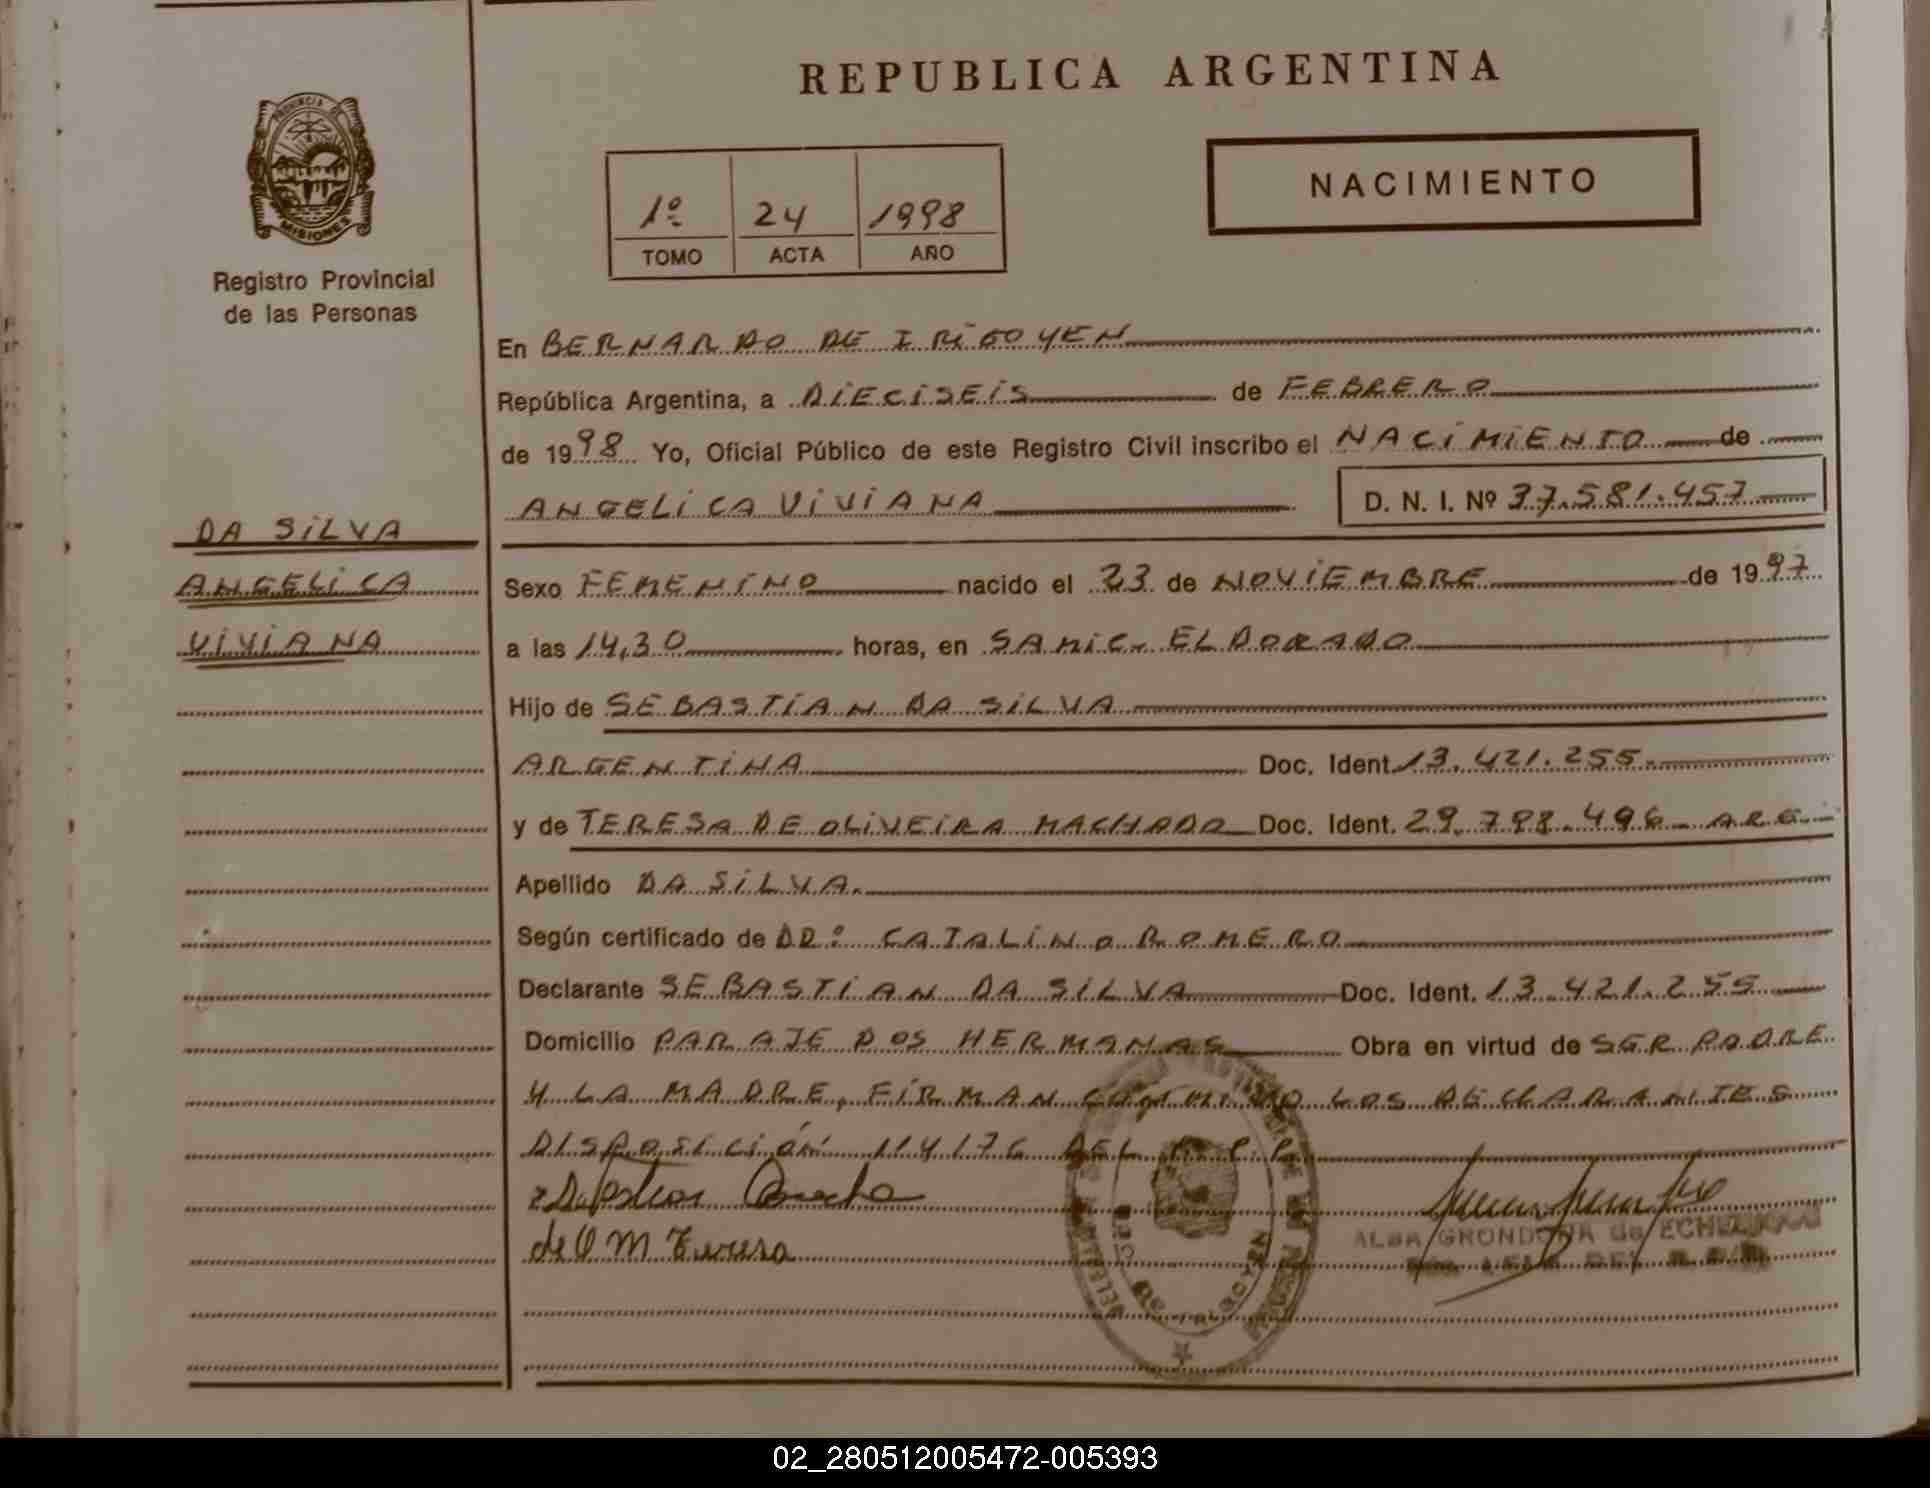 REPUBLICA ARGENTINA
PROVINCIA DE
MISIONES
Registro Provincial
de las Personas
1º 24 1998
TOMO ACTA AÑO
NACIMIENTO
En BERNARDO DE IRIGOYEN
República Argentina, a DIECISEIS de FEBRERO
de 1998 Yo, Oficial Público de este Registro Civil inscribo el NACIMIENTO de
ANGELICA VIVIANA D. N. I. Nº 37.581.457
DA SILVA
ANGELICA
VIVIANA
Sexo FEMENINO nacido el 23 de NOVIEMBRE de 1997
a las 14,30 horas, en SANIC. ELDORADO
Hijo de SEBASTIAN DA SILVA
ARGENTINA Doc. Ident. 13.421.255.
y de TERESA DE OLIVEIRA MACHADO Doc. Ident. 29.798.496 - ARG.
Apellido DA SILVA.
Según certificado de DR: CATALINO ROMERO
Declarante SEBASTIAN DA SILVA Doc. Ident. 13.421.255
Domicilio PARAJE DOS HERMANAS Obra en virtud de SER PADRE
Y LA MADRE, FIRMAN CONMIGO LOS DECLARANTES
DISPOSICIÓN 114/76 DEL R.P.P.
de O M Teresa
ALBA GRONDONA de
02_280512005472-005393